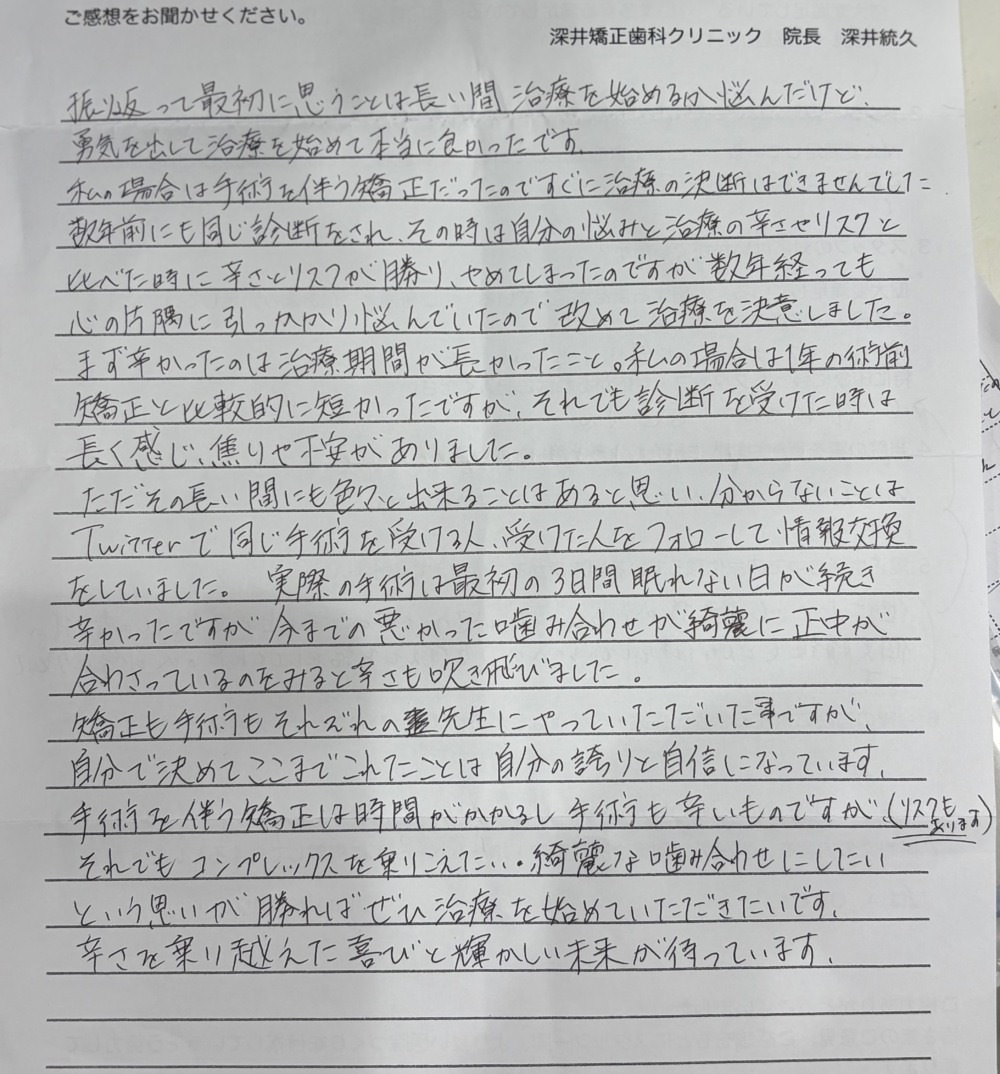 ご感想をお聞かせください。
深井矯正歯科クリニック　院長　深井統久
振り返って最初に思うことは長い間 治療を始めるか悩んだけど、
勇気を出して治療を始めて本当に良かったです。
私の場合は手術を伴う矯正だったのですぐに治療の決断はできませんでした
数年前にも同じ診断をされ、その時は自分の悩みと治療の辛さやリスクと
比べた時に辛さとリスクが勝り、やめてしまったのですが数年経っても
心の片隅に引っかかり悩んでいたので改めて治療を決意しました。
まず辛かったのは治療期間が長かったこと。私の場合は1年の術前
矯正と比較的に短かったですが、それでも診断を受けた時は
長く感じ、焦りや不安がありました。
ただその長い間にも色々と出来ることはあると思い、分からないことは
Twitterで同じ手術を受ける人、受けた人をフォローして、情報交換
をしていました。 実際の手術は最初の3日間眠れない日が続き
辛かったですが今までの悪かった噛み合わせが綺麗に正中が
合わさっているのをみると辛さも吹き飛びました。
矯正も手術もそれぞれの先生にやっていただいた事ですが、
自分で決めてここまでこれたことは自分の誇りと自信になっています。
手術を伴う矯正は時間がかかるし手術も辛いものですが、(リスクもあります)
それでもコンプレックスを乗りこえたい・綺麗な噛み合わせにしたい
という思いが勝ればぜひ治療を始めていただきたいです。
辛さを乗り越えた喜びと輝かしい未来が待っています。